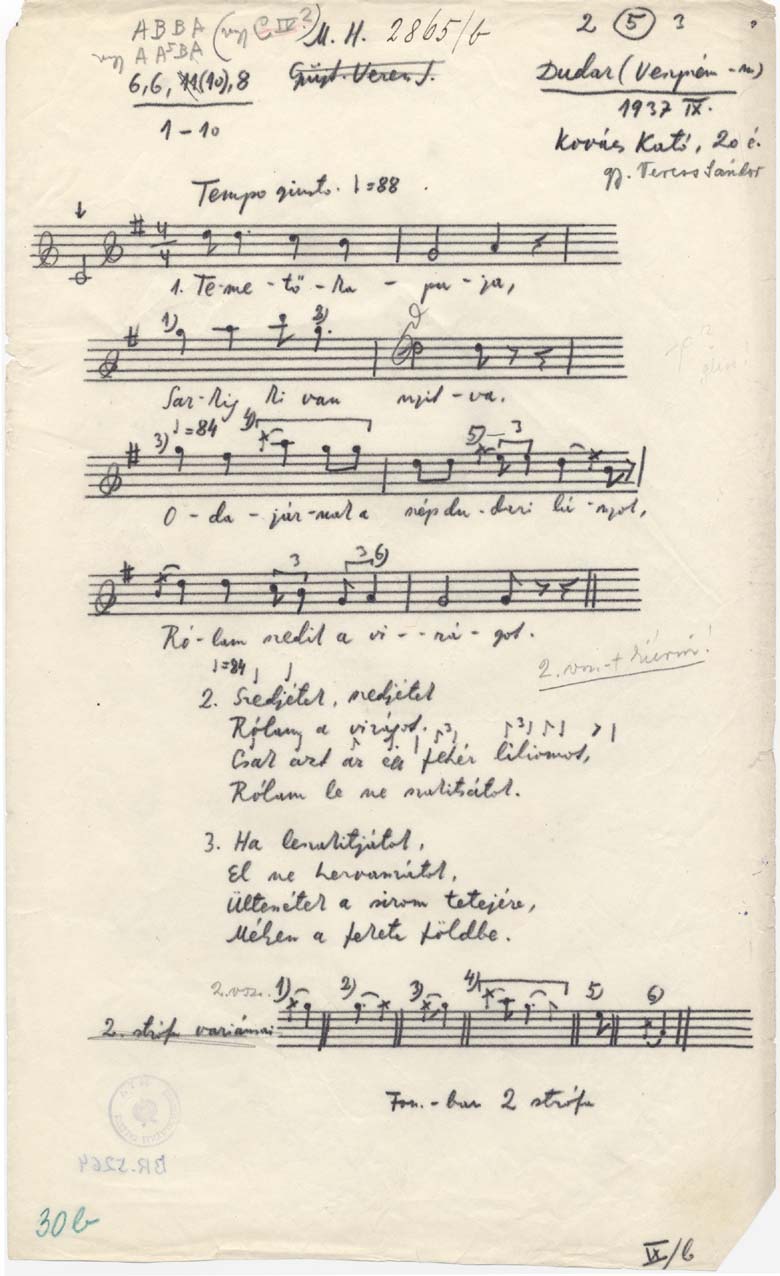 ABBA (vagy C IV ?)
vagy AA⁵BA
6,6, 11(10), 8
1-10
M. H. 2865/b
Gyűjt. Veress S.
2 5 3
Dudar (Veszprém-m)
1937 IX.
Kovács Kató, 20 é.
gy. Veress Sándor
Tempo giusto. ♩=88
4/4
1. Te-me-tő-ka-pu-ja,
1) 2)
Sar-kig ki van nyit-va.
3) ♩=84 4) 5) 3
O-da-jár-nak a szép du-dari lá-nyok,
3 3 6)
Ró-lam szedik a vi--rá-got.
2. vsz.-t kiírni!
♩=84
2. Szedjétek, szedjétek
Rólam a virágot.
Csak azt az fehér liliomot,
Rólam le ne szakítsátok.
3. Ha leszakítjátok,
El ne hervasszátok,
Ültessétek a sírom tetejére,
Mélyen a fekete földbe.
2. vsz. 1) 2) 3) 4) 5) 6)
2. strófa variánsai
Fon.-ban 2 strófa
BR.5264
30b
IX/b